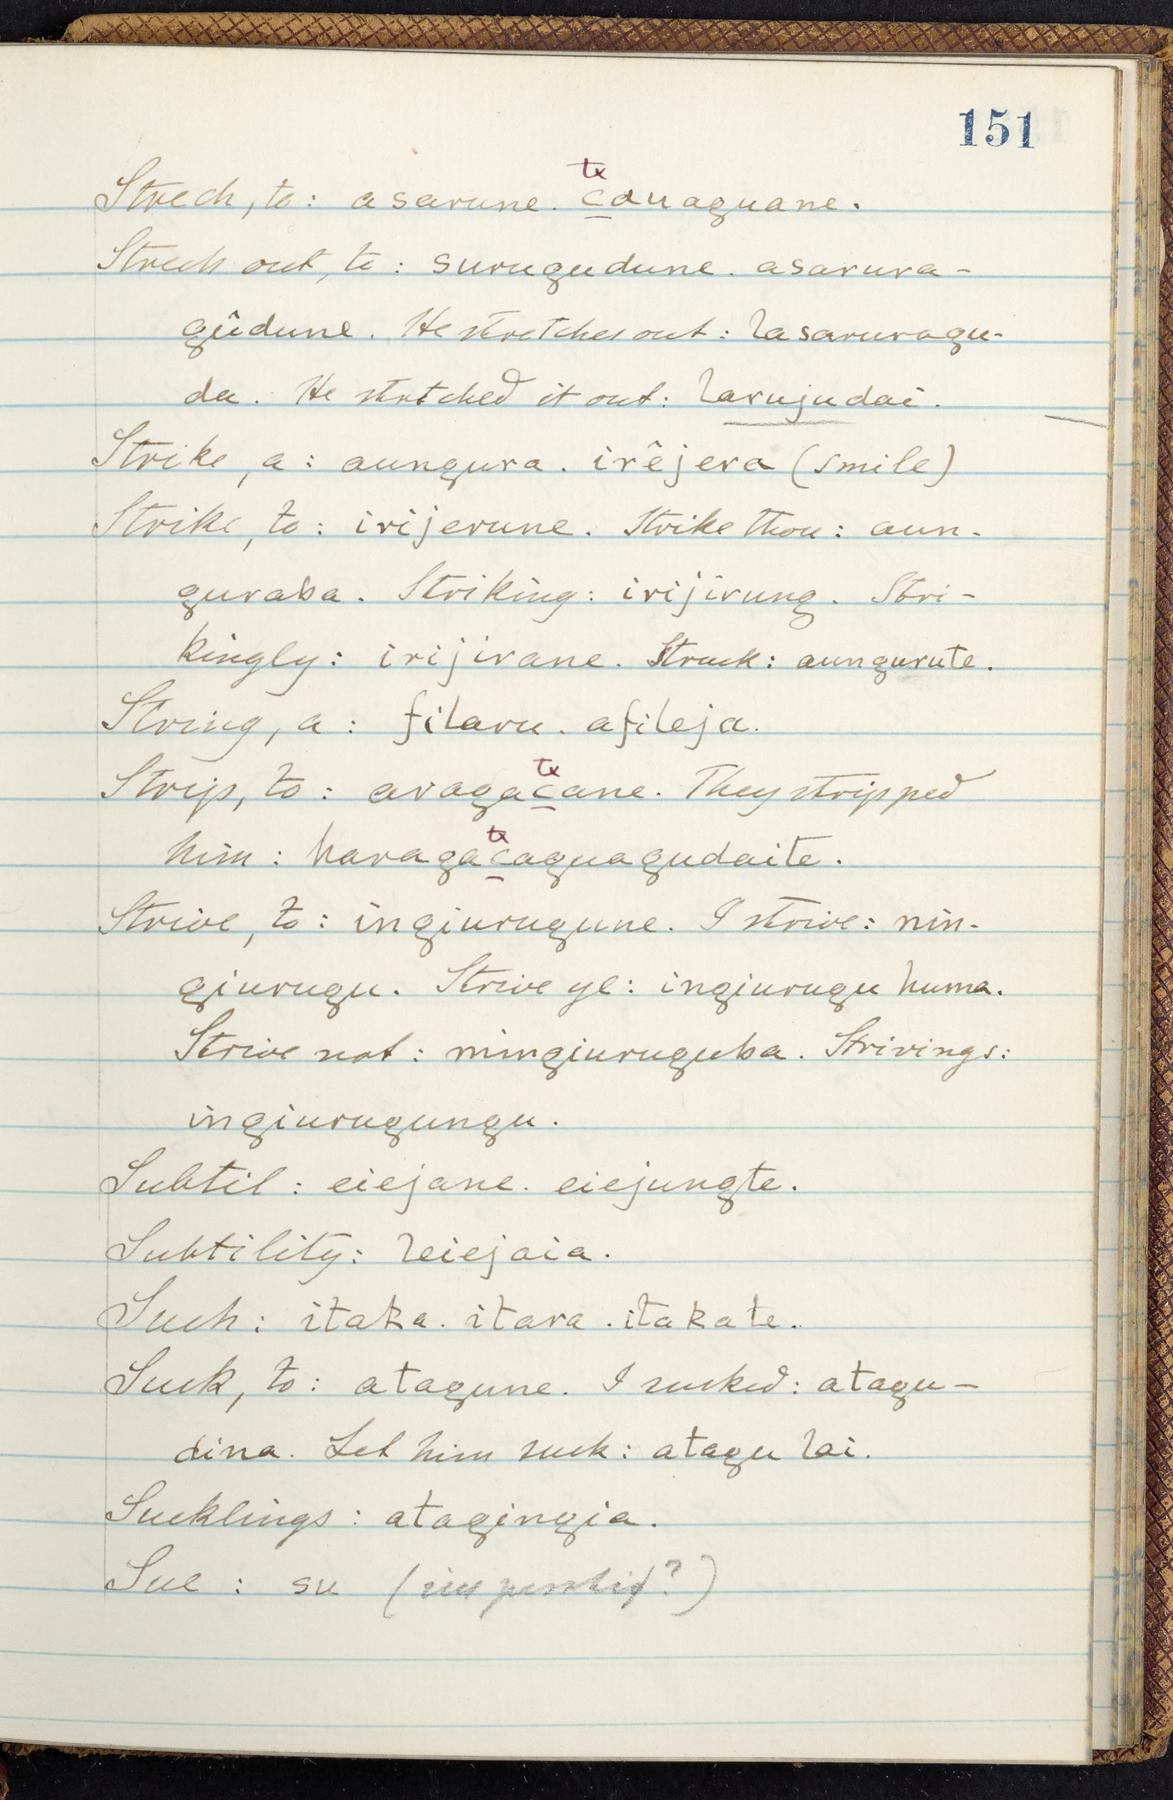 151
tx
Strech, to: asarune. cauaguane.
Strech out, to: surugudune. asarura-
gûdune. He stretches out: lasaruragu-
da. He stretched it out: larujudai.
Strike, a: aungura. irêjera (smile)
Strike, to: irijerune. Strike thou: aun-
guraba. Striking: irijirung. Stri-
kingly: irijirane. Struck: aungurute.
String, a: filaru. afileja.
tx
Strip, to: aragacane. They stripped
tx
him: haragacaguagudaite.
Strive, to: ingiurugune. I strive: nin-
giurugu. Strive ye: ingiurugu huma.
Strive not: mingiuruguba. Strivings:
ingiurugungu.
Subtil: eiejane. eiejungte.
Subtility: leiejaia.
Such: itaka. itara. itakate.
Suck, to: atagune. I sucked: atagu-
dina. Let him suck: atagu lai.
Sucklings: atagingia.
Sue: su ( ?)